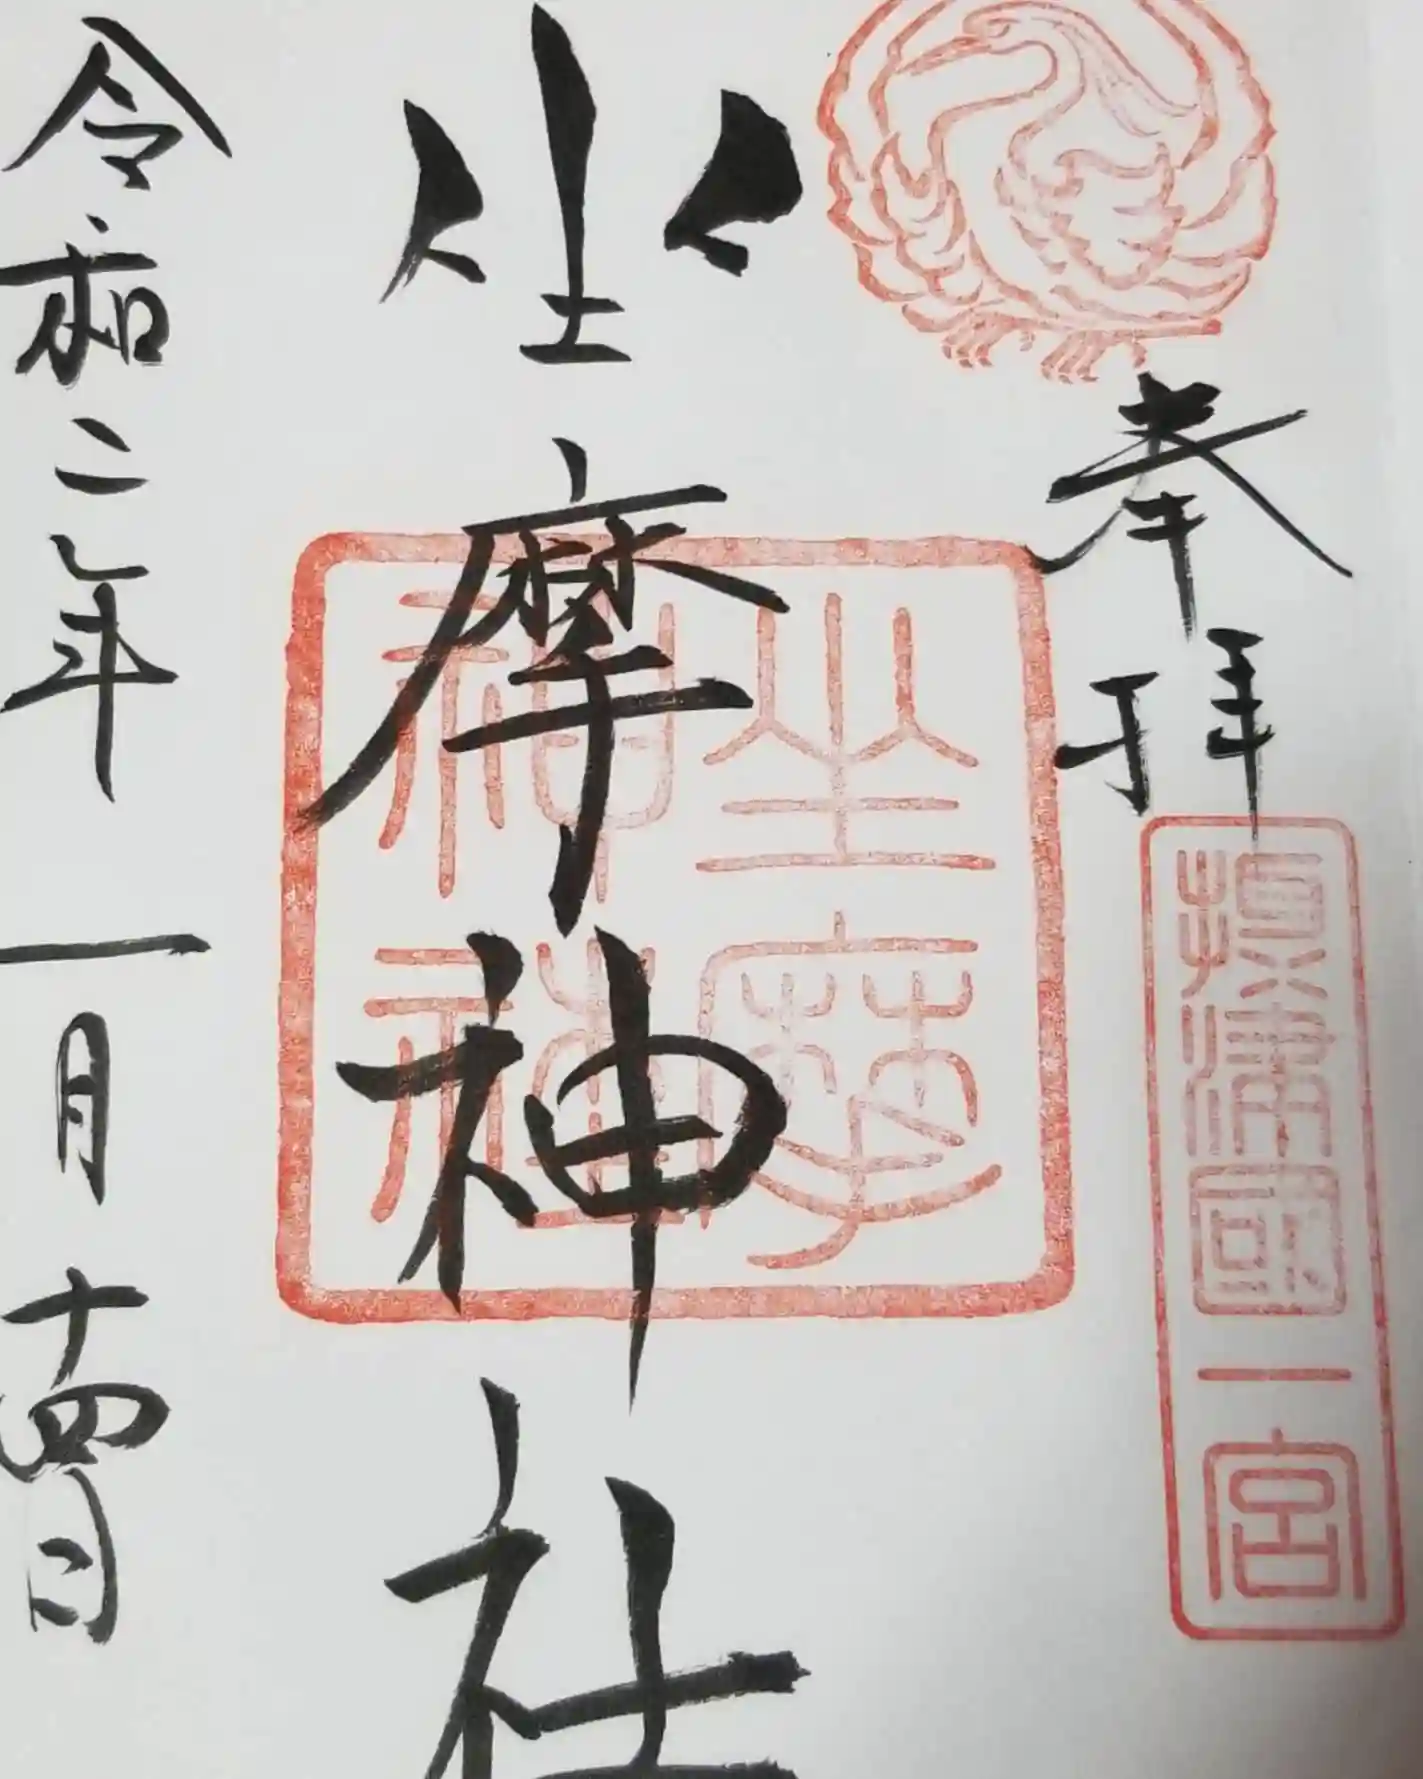 奉拝
摂津國一宮
坐摩神社
坐摩神社
令和二年一月十四日